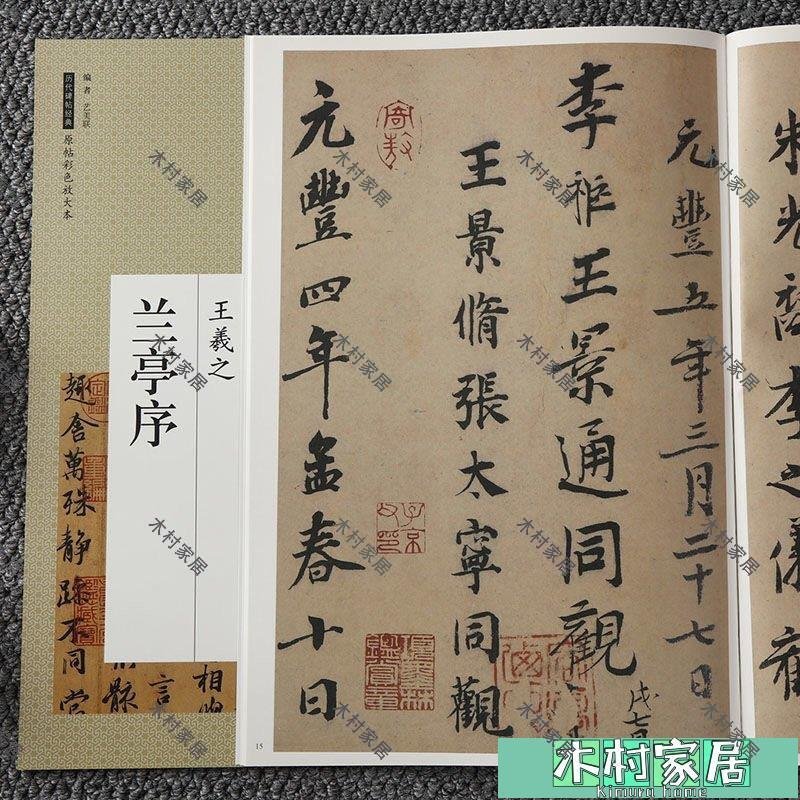 历代碑帖经典
原帖彩色放大本
编者 艺美联
王羲之
兰亭序
趣舍萬殊静躁不同當
朱光裔李之儀觀
元豐五年三月二十七日
李秬王景通同觀
王景脩張太寧同觀
元豐四年孟春十日
15
木村家居
Kimura home